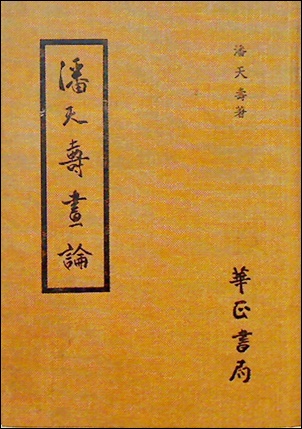 潘天壽著
潘天壽畫論
華正書局